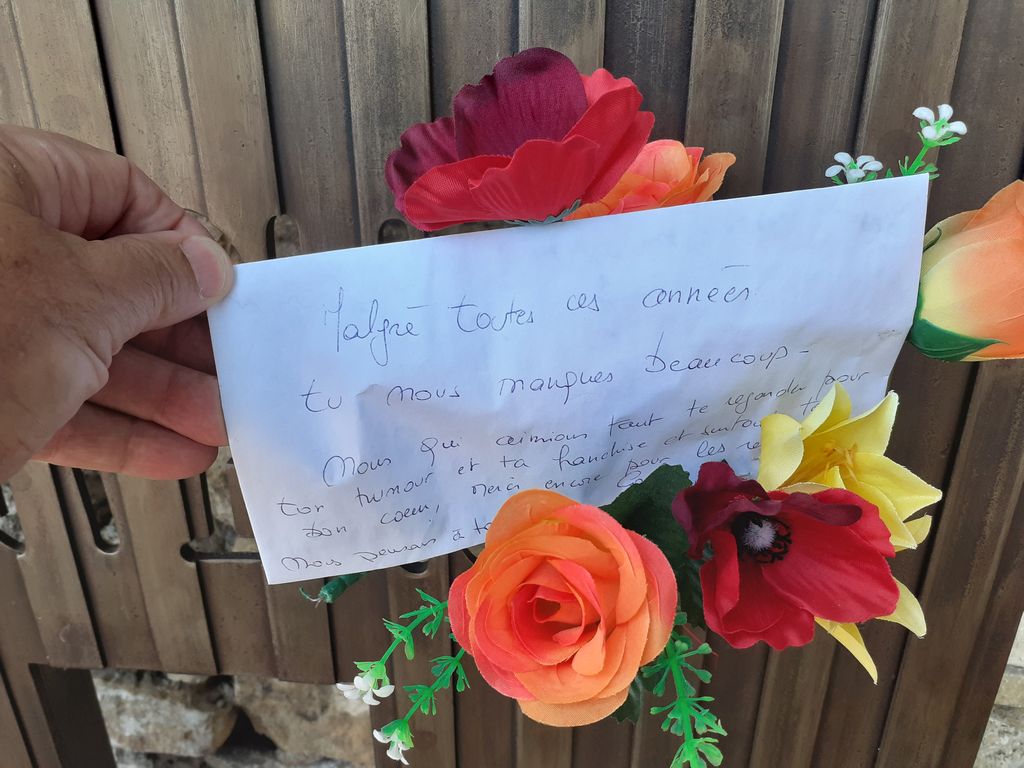 Malgré toutes ces années
tu nous manques beaucoup -
Nous qui aimions tant te regarder pour
ton humour et ta franchise et surtout
ton coeur, Merci encore pour les
Nous pensons à